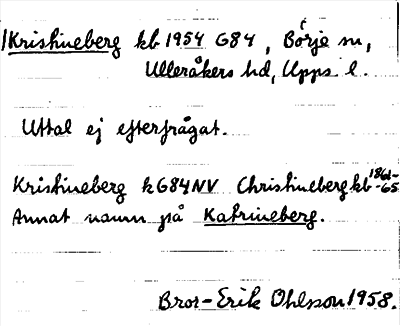 Kristineberg kb 1954 G84, Börje sn,
Ulleråkers hd, Upps. l.
Uttal ej efterfrågat.
Kristineberg k G84NV Christineberg kb 1861-65
Annat namn på Katrineberg.
Bror-Erik Ohlsson 1958.